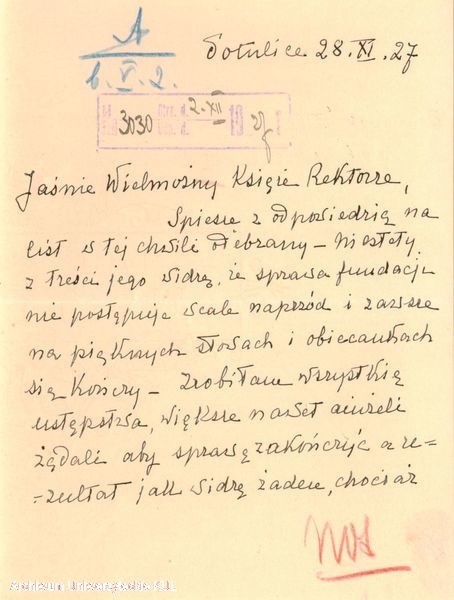 A
b. V. 2.
Potulice 28. XI. 27
3030
2. XII
19 27 r
Jaśnie Wielmożny Księże Rektorze,
Spieszę z odpowiedzią na
list w tej chwili odebrany – niestety
z treści jego widzę, że sprawa fundacji
nie postępuje wcale naprzód i zawsze
na pięknych słowach i obiecankach
się kończy – Zrobiłam wszystkie
ustępstwa, większe nawet aniżeli
żądali aby sprawę zakończyć a re=
=zultat jak widzę żaden, chociaż
Archiwum Uniwersyteckie KUL